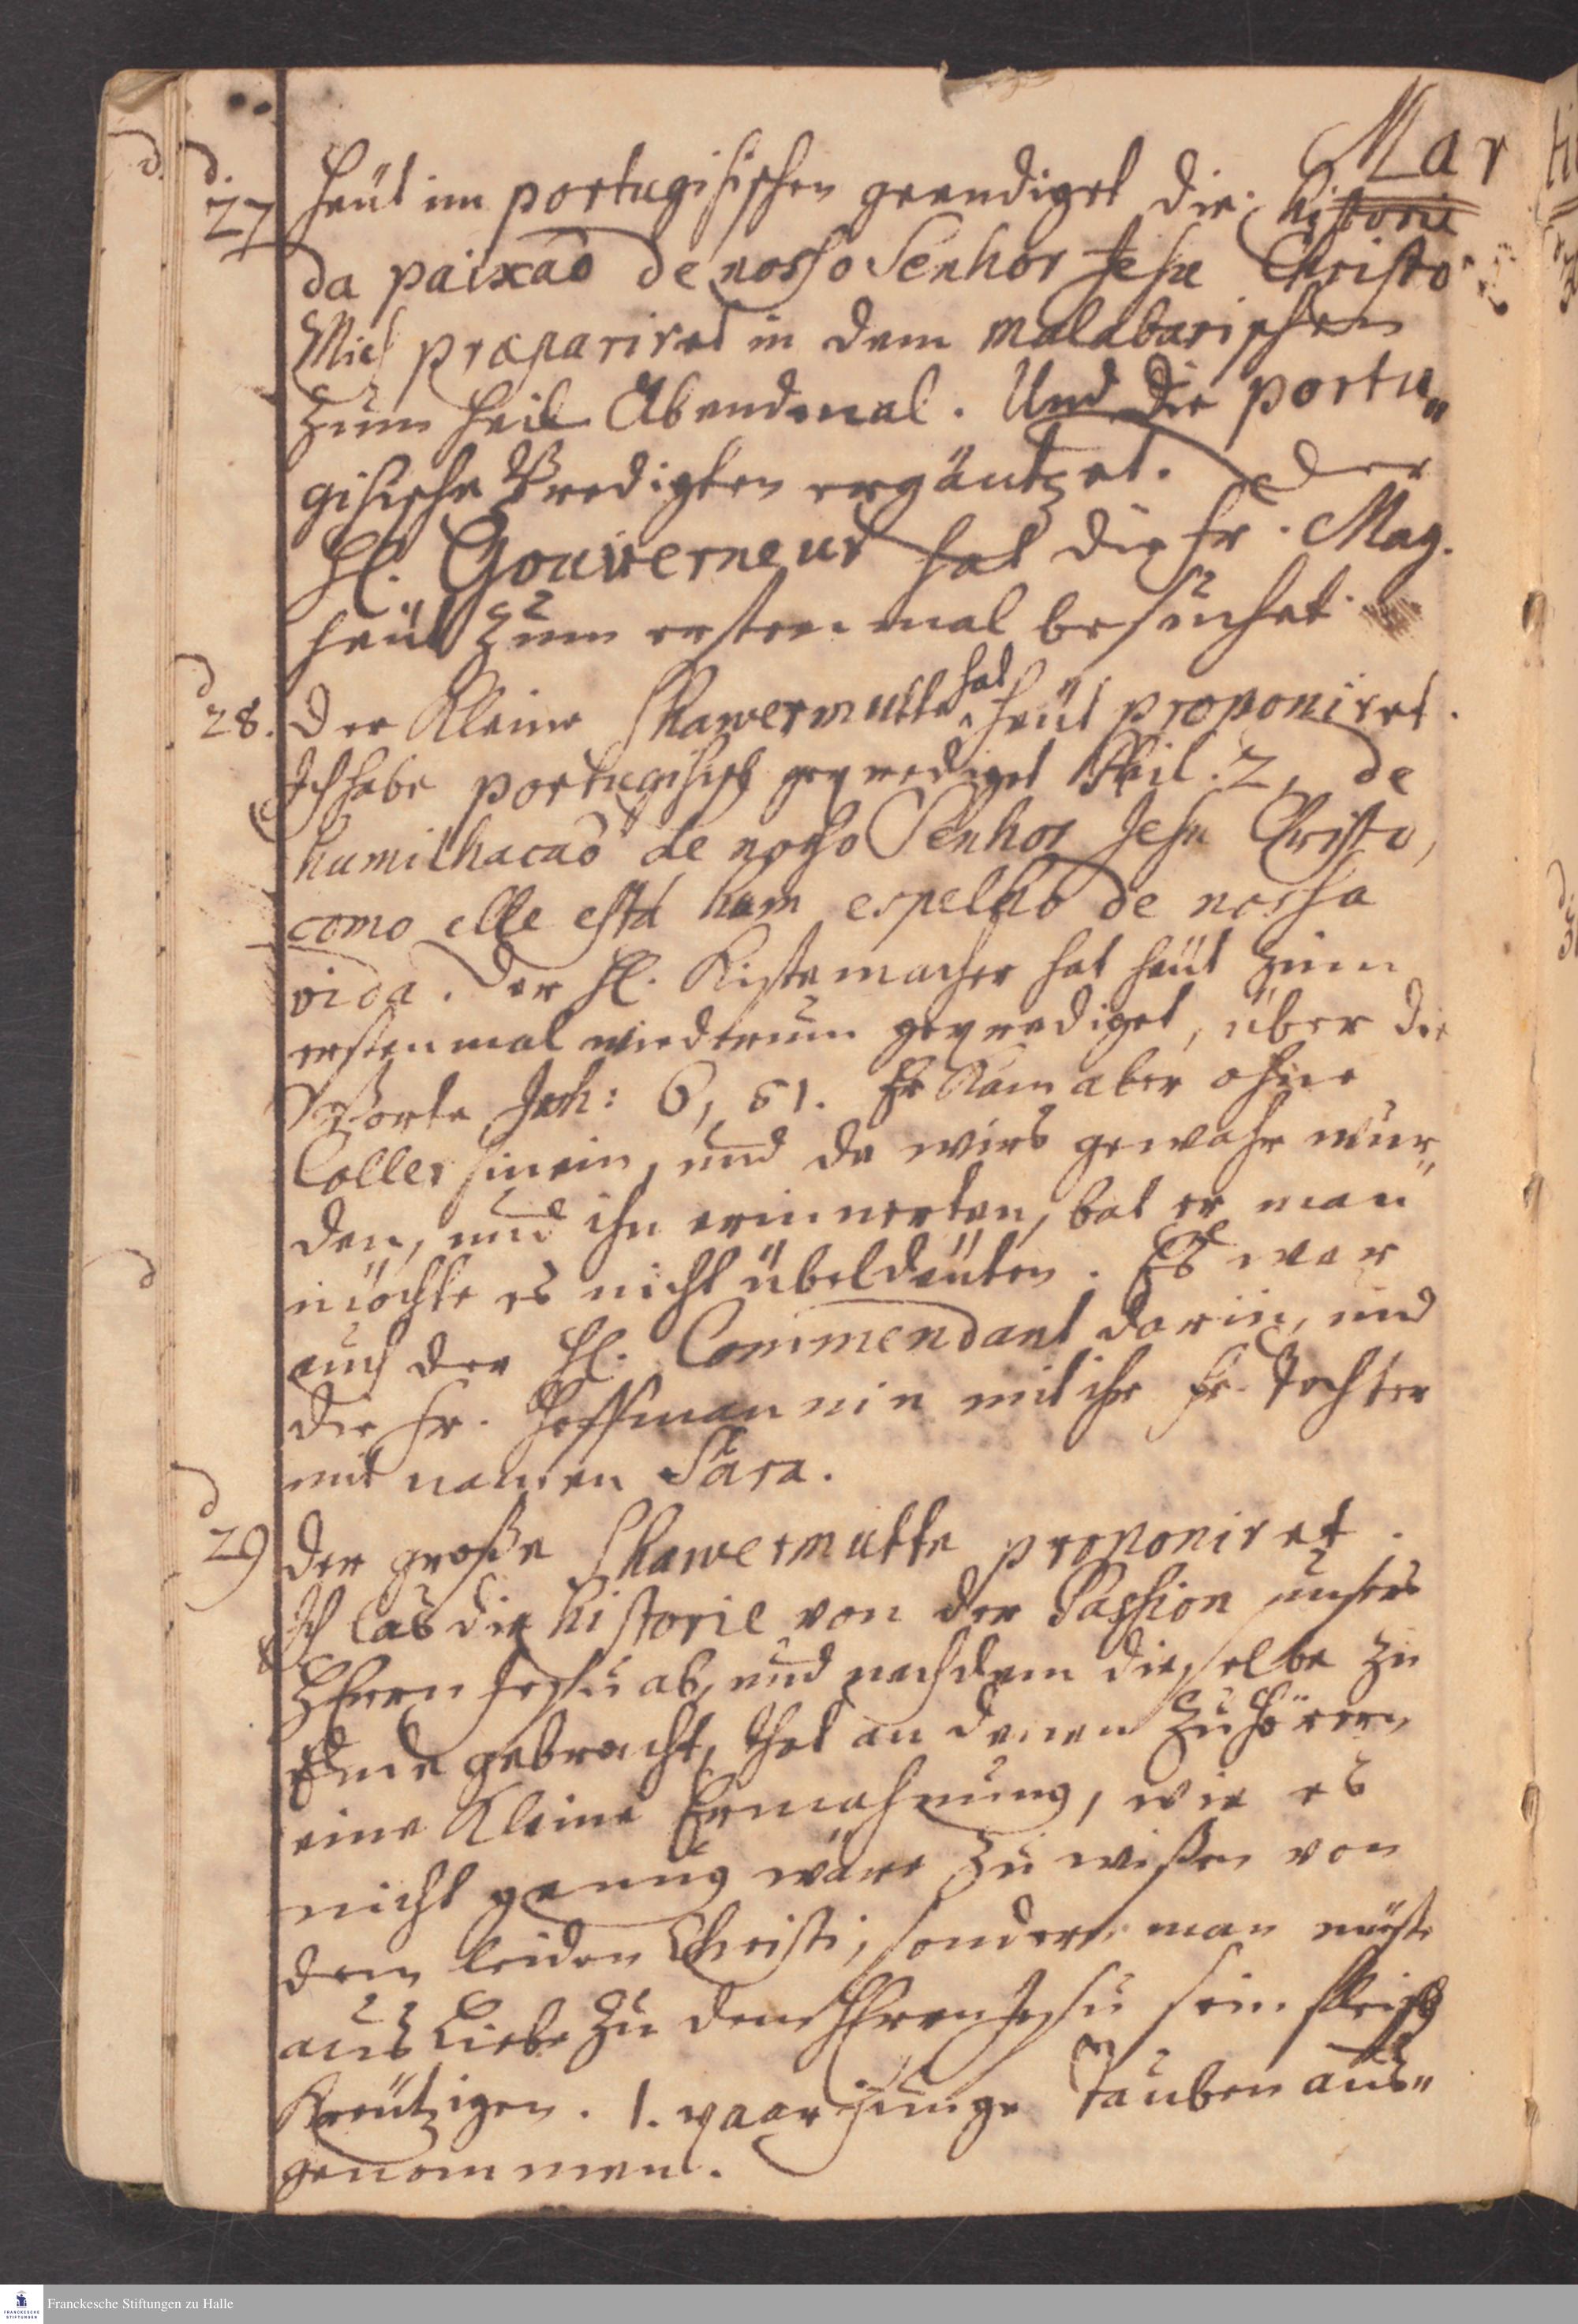 Mar
d. 27 heüt im portugisischen geendiget die historie
da paixaõ de nosso Senhor Jesu Christo
Mich præpariret in dem malabarischen
zum heil Abendmal. Und die portu„
gisische Predigten ergäntzet. Der
H. Gouverneur hat die Fr. Mag.
heüt zum ersten mal besuchet.
d 28. Der Kleine Shawermutte hat heüt proponiret.
Ich habe portugisisch geprediget Phil. 2, de
humilhacaõ de nosso Senhor Jesu Christo,
como elle está hum espelho de nossa
vida. Der H. Kistemacher hat heüt zum
erstenmal wiederum geprediget, über die
Worte Joh: 6, 51. Er kam aber ohne
Coller hinein, und da wirs gewahr wur„
den, und ihn erinnerten, bat er man
möchte es nicht übeldeüten. Es war
auch der H. Commendant darin, und
die Fr. Hoffmannin mit ihr Fr. Tochter
mit namen Sara.
d 29 Der große Shawermutte proponiret.
Ich las die historie von der Passion unsers
HErrn Jesu ab, und nachdem dieselbe zu
Ende gebracht, that an denen Zuhörern
eine Kleine Ermahnung, wie es
nicht genung wäre zu wißen von
dem leiden Christi, sondern man müste
aus Liebe zu dem HErrn Jesu sein fleisch
Kreützigen. 1. paar junge Tauben aus„
genommen.
Franckesche Stiftungen zu Halle